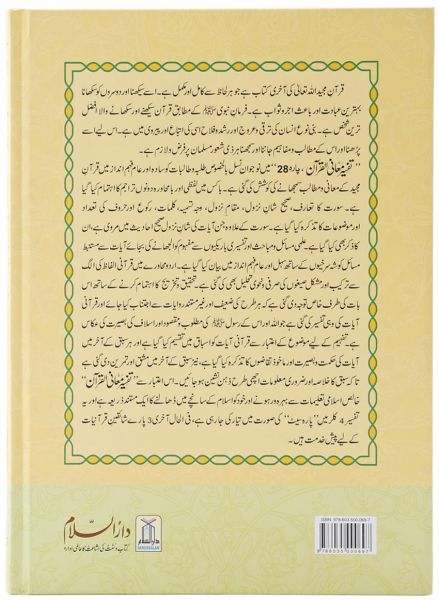 قرآن مجید اللہ تعالیٰ کی آخری کتاب ہے جو ہر لحاظ سے کامل اور مکمل ہے۔ اسے سیکھنا اور دوسروں کو سکھانا
بہترین عبادت اور باعث اجر و ثواب ہے۔ فرمان نبوی ﷺ کے مطابق قرآن سیکھنے اور سکھانے والا افضل
ترین شخص ہے۔ بنی نوع انسان کی ترقی و عروج اور رشد و فلاح اسی کی اتباع اور پیروی میں ہے۔ اس لیے اسے
پڑھنا اور اس کے مطالب و مفاہیم جاننا اور سمجھنا ہر ذی شعور مسلمان پر فرض و لازم ہے۔
"تفسیر معانی القرآن، پارہ 28" میں نوجوان نسل بالخصوص طلبہ و طالبات کو سادہ اور عام فہم انداز میں قرآن
مجید کے معانی و مطالب سمجھانے کی کوشش کی گئی ہے۔ اس میں لفظی اور بامحاورہ دونوں تراجم کا اہتمام کیا گیا
ہے۔ سورت کا تعارف، صحیح شان نزول، مقام نزول، وجہ تسمیہ، کلمات، رکوع اور حروف کی تعداد
اور موضوعات کا تذکرہ کیا گیا ہے۔ سورت کے علاوہ جن آیات کی شان نزول صحیح احادیث میں مروی ہے، ان
کا ذکر بھی کیا گیا ہے۔ علمی مسائل و مباحث اور تفسیری باریکیوں سے مفہوم کو الجھانے کی بجائے آیات سے مستنبط
مسائل کو شذ سرخیوں کے ساتھ سہل اور عام فہم انداز میں بیان کیا گیا ہے۔ اردو محاورے میں قرآنی الفاظ کی الگ
سے ترکیب اور مشکل صیغوں کی صرفی و نحوی تحلیل بھی کی گئی ہے۔ تحقیق و تخریج کا اہتمام کرنے کے ساتھ اس
بات کی طرف خاص توجہ دی گئی ہے کہ ہر طرح کی ضعیف اور غیر مستند روایات سے اجتناب کیا جائے اور قرآنی
آیات کی وہی تفسیر کی گئی ہے جو اللہ اور اس کے رسول ﷺ کی مطلوب و مقصود اور اسلاف کی بصیرت کی عکاس
ہے۔ تفہیم کے لیے موضوع کے اعتبار سے قرآنی آیات کو اسباق میں تقسیم کیا گیا ہے اور ہر سبق کے آخر میں
آیات کی حکمت و بصیرت اور ماخوذ تقاضوں کا تذکرہ کیا گیا ہے، نیز سبق کے آخر میں مشق اور تمرین دی گئی ہے
تاکہ سبق کا خلاصہ اور ضروری معلومات اچھی طرح ذہن نشین ہو جائیں۔ اس اعتبار سے "تفسیر معانی القرآن"
خالص اسلامی تعلیمات سے بہرہ ور ہونے اور خود کو اسلام کے سانچے میں ڈھالنے کا ایک مستند ذریعہ ہے اور یہ
تفسیر 4 کلر میں "پارہ سیٹ" کی صورت میں تیار کی جا رہی ہے، فی الحال آخری 3 پارے شائقین قرآنیات
کے لیے پیش خدمت ہیں۔
دارالسلام
کتاب و سنت کی اشاعت کا عالمی ادارہ
DARUSSALAM
ISBN: 978-603-500-069-7
9 786035 000697